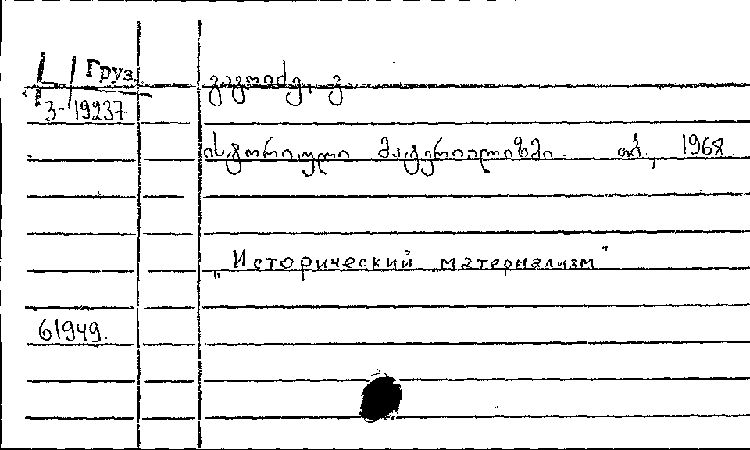 L / Груз
3-19237
ისტორიული მატერიალიზმი თბ., 1968
„Исторический материализм"
61949.